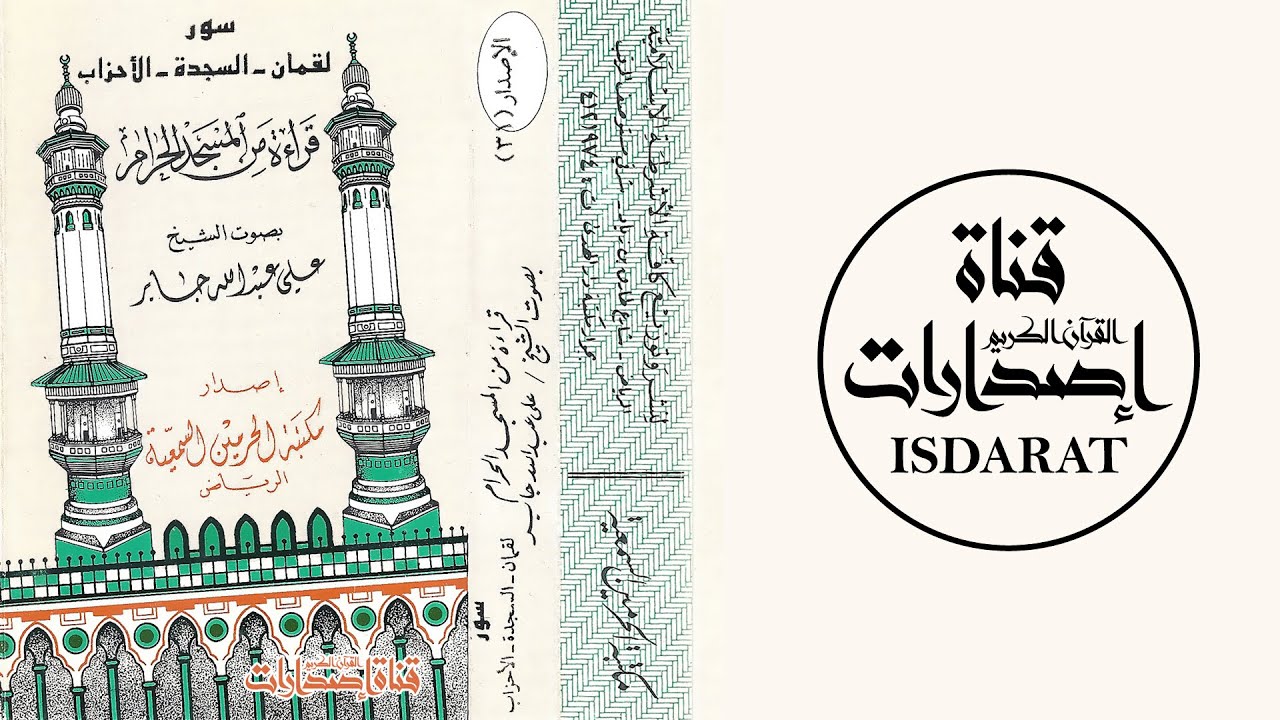 سور
لقمان - السجدة - الأحزاب
قراءة من المسجد الحرام
بصوت الشيخ
علي عبد الله جابر
إصدار
مكتبة الحرمين السمعية
الرياض
قناة إصدارات
القرآن الكريم
الإصدار (٣١)
قراءة من المسجد الحرام
بصوت الشيخ / علي عبد الله جابر
سور
لقمان - السجدة - الأحزاب
مكتبة الحرمين السمعية
قناة
القرآن الكريم
إصدارات
ISDARAT